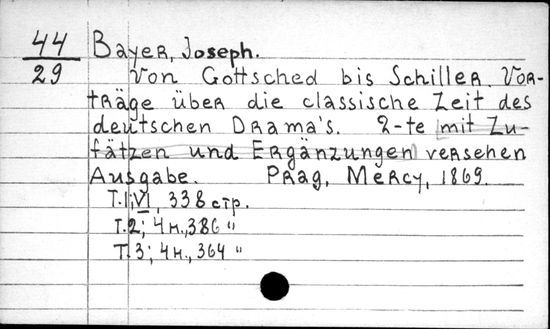 44
29
Bayer, Joseph.
Von Gottsched bis Schiller. Vor-
träge über die classische Zeit des
deutschen Drama's. 2-te [mit Zu-
fätzen und Ergänzungen] versehen
Ausgabe. Prag, Mercy, 1869.
T.1; VI, 338 стр.
T.2; 4 н., 386 "
T.3; 4 н., 364 "